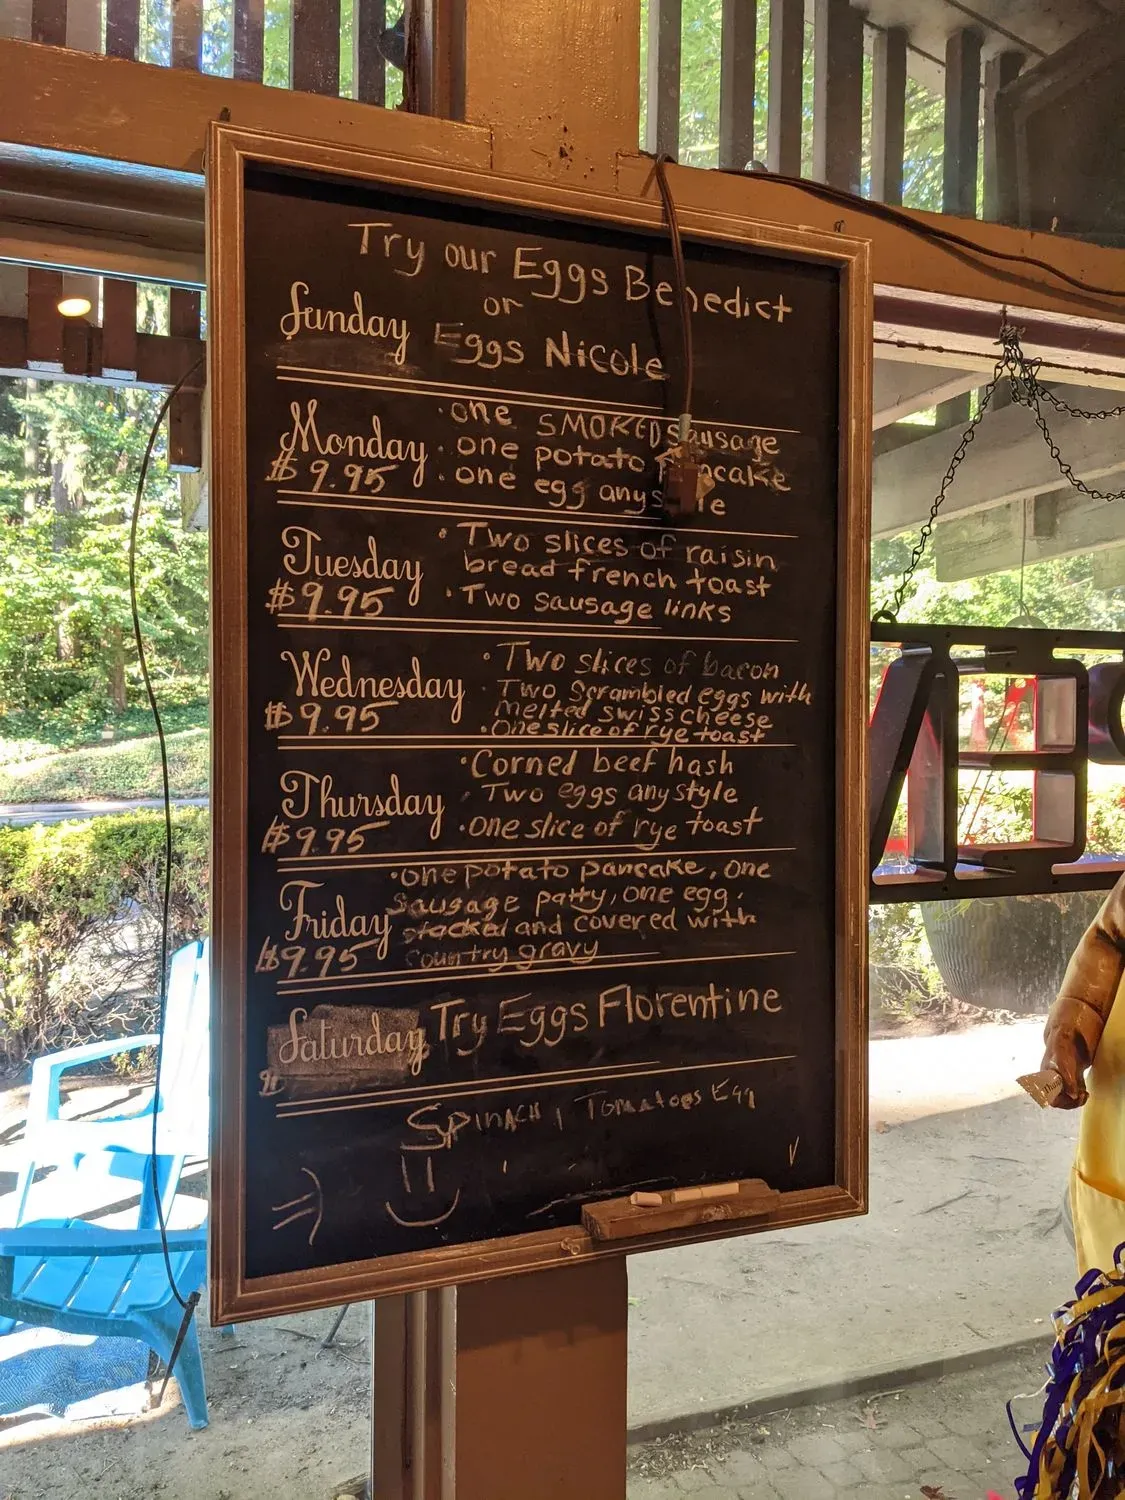 Try our Eggs Benedict
or
Sunday Eggs Nicole
Monday
$9.95
· one SMOKED sausage
· one potato
· one egg
Tuesday
$9.95
· Two slices of raisin
bread french toast
· Two sausage links
Wednesday
$9.95
· Two slices of bacon
· Two Scrambled eggs with
melted swiss cheese
· One slice of rye toast
Thursday
$9.95
· Corned beef hash
· Two eggs any style
· One slice of rye toast
Friday
$9.95
· One potato pancake, One
Sausage patty, one egg,
stacked and covered with
country gravy
Saturday Try Eggs Florentine
Spinach, Tomatoes Egg